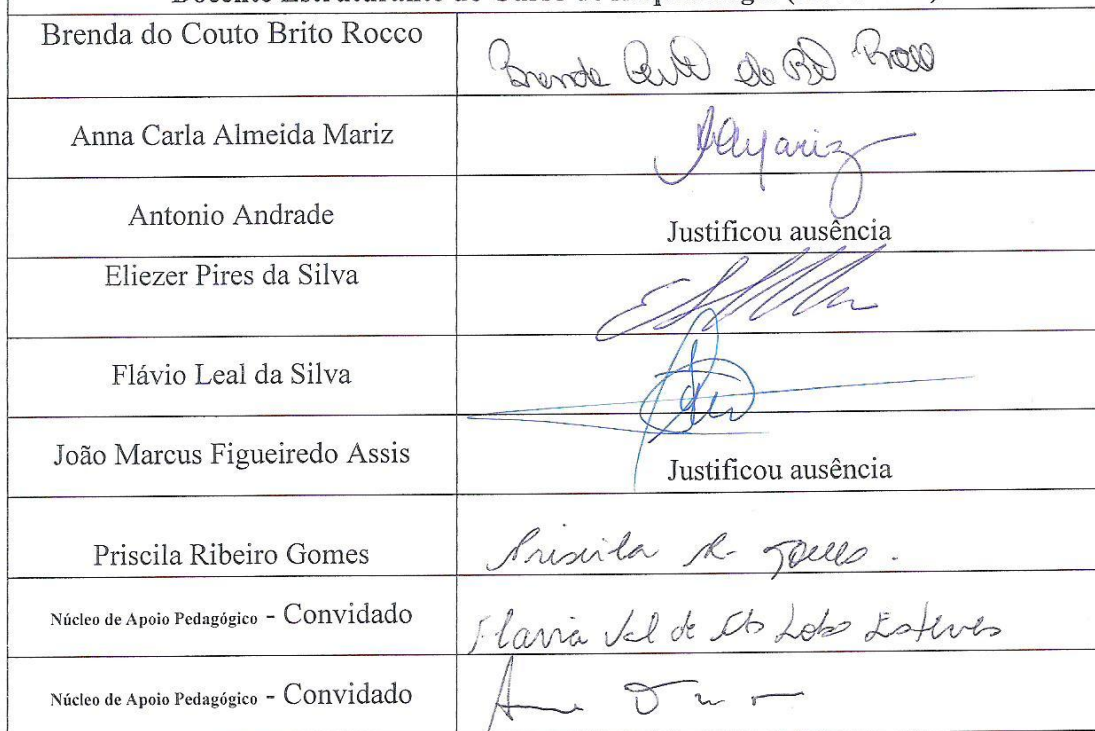 Brenda do Couto Brito Rocco
Anna Carla Almeida Mariz
Antonio Andrade
Justificou ausência
Eliezer Pires da Silva
Flávio Leal da Silva
João Marcus Figueiredo Assis
Justificou ausência
Priscila Ribeiro Gomes
Priscila R. Gomes.
Núcleo de Apoio Pedagógico - Convidado
Flavia Val de Lobo Esteves
Núcleo de Apoio Pedagógico - Convidado